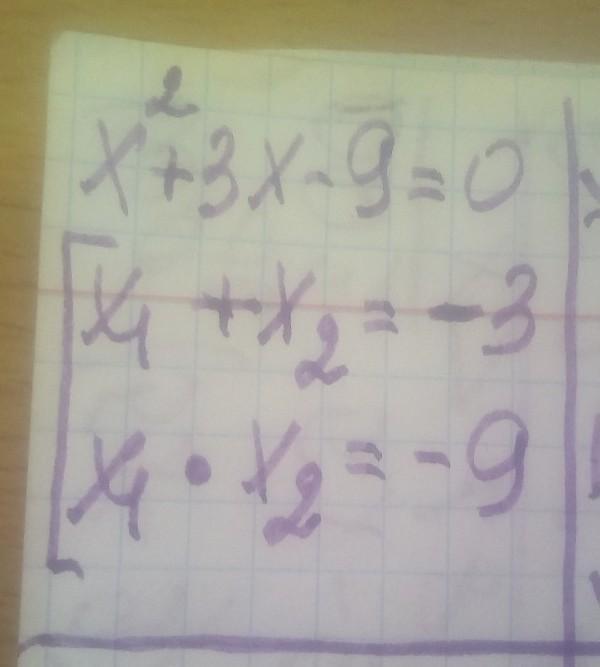 x²+3x-9=0
x₁+x₂=-3
x₁·x₂=-9